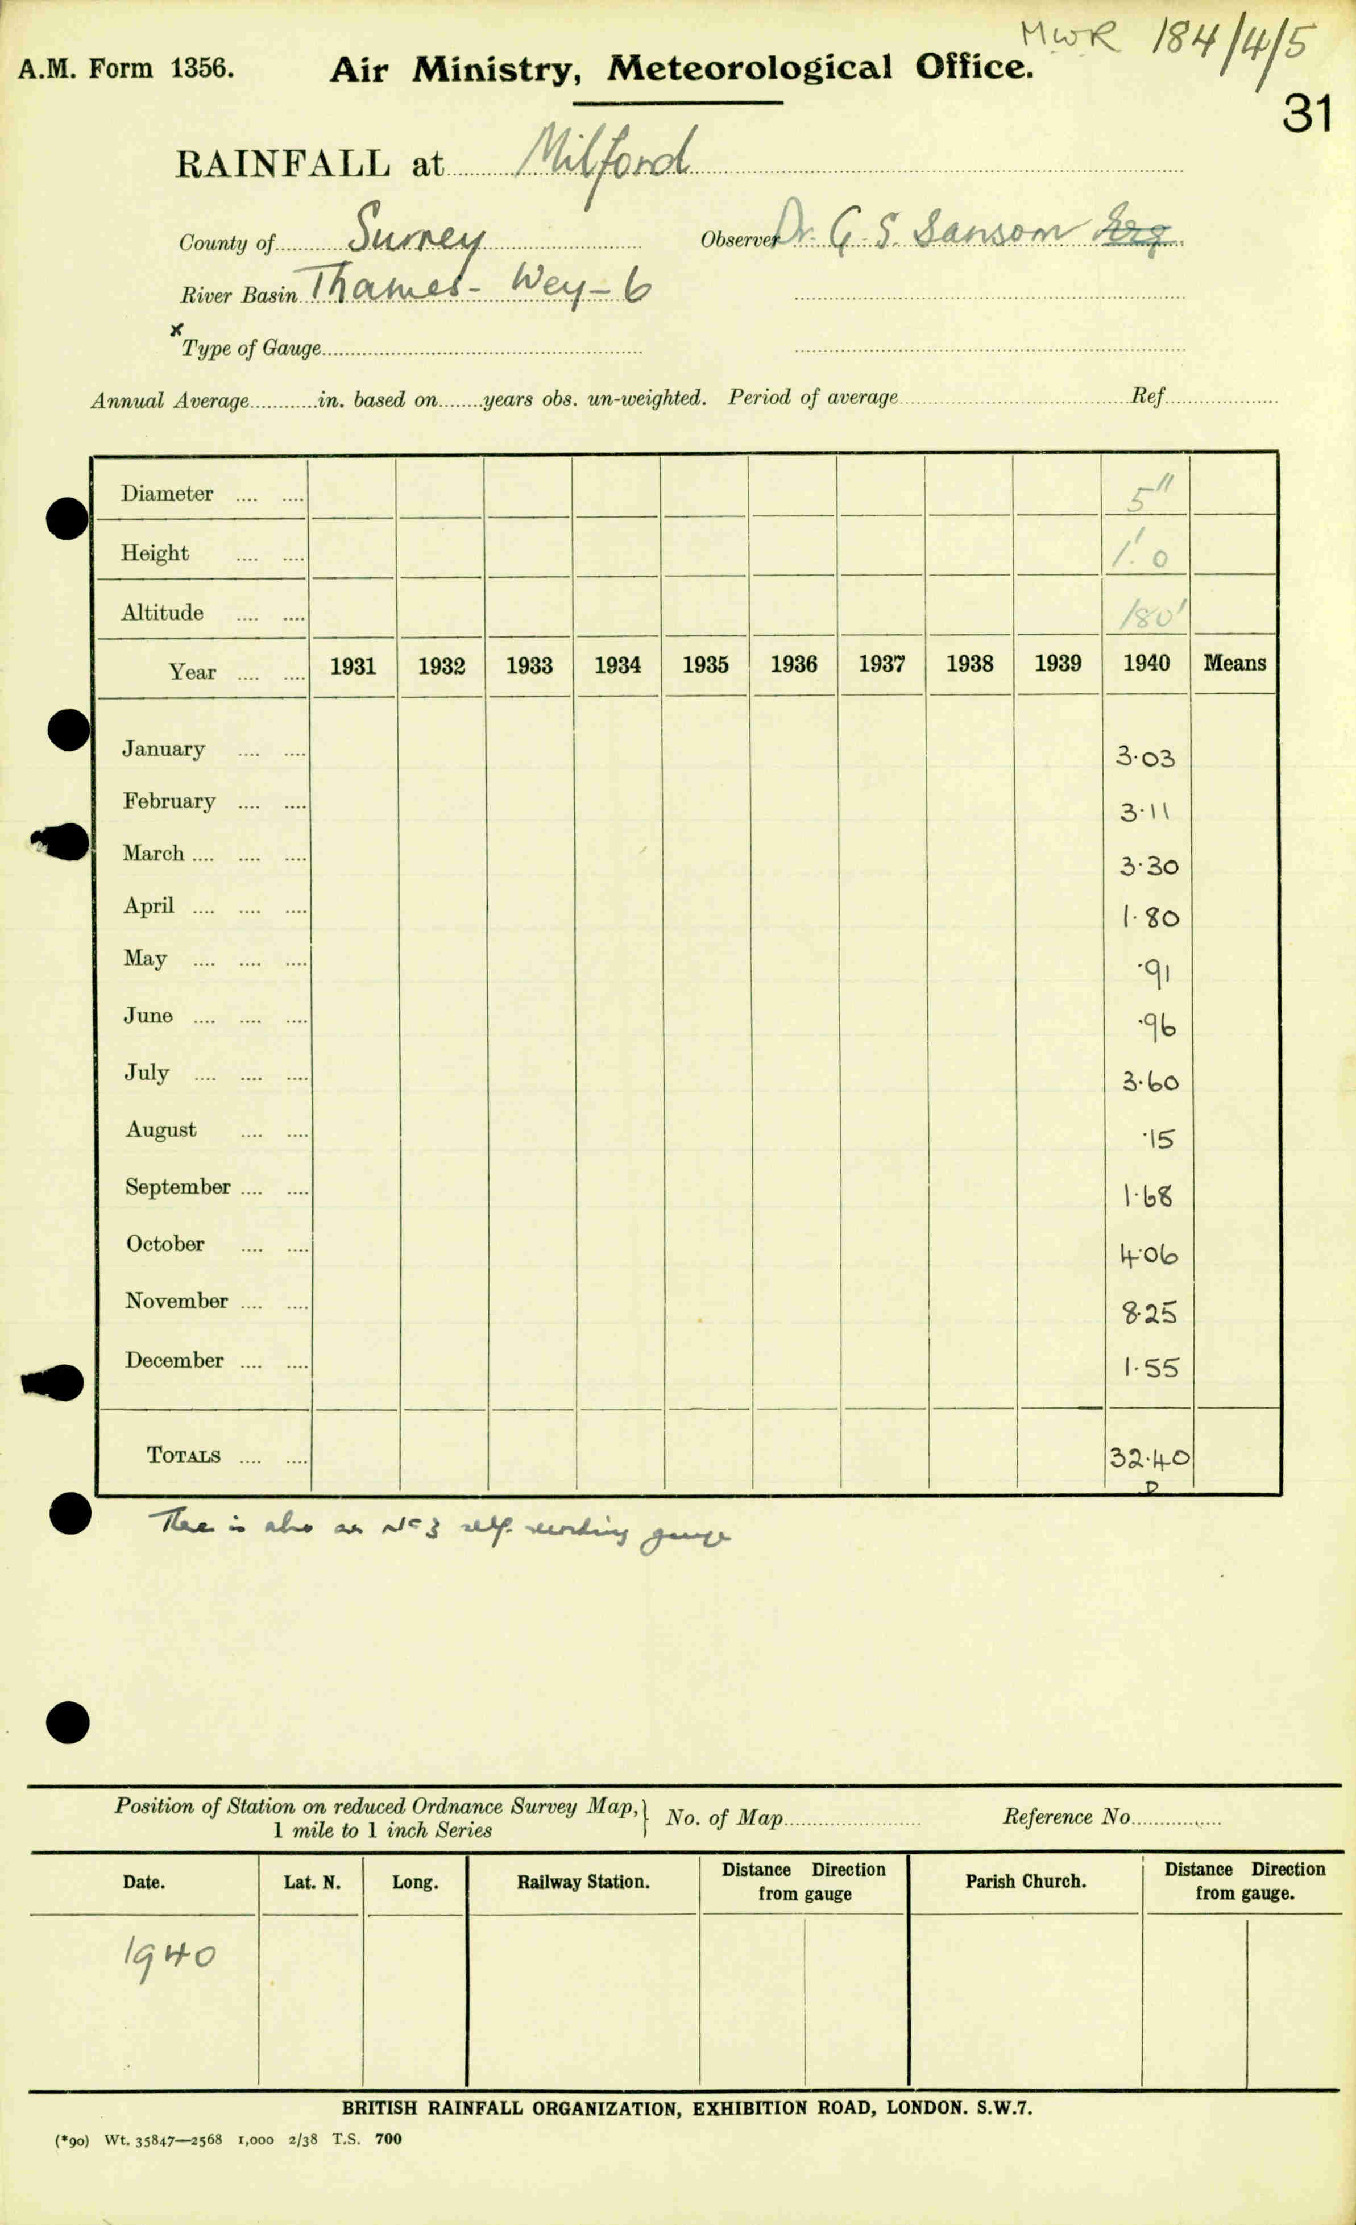 MWR 184/4/5
A.M. Form 1356. Air Ministry, Meteorological Office.
31
RAINFALL at Milford
County of Surrey Observer Dr. G. S. Sansom Esq
River Basin Thames - Wey - 6
x Type of Gauge
Annual Average in. based on years obs. un-weighted. Period of average Ref
Diameter 5"
Height 1'.0
Altitude 180'
Year 1931 1932 1933 1934 1935 1936 1937 1938 1939 1940 Means
January 3.03
February 3.11
March 3.30
April 1.80
May .91
June .96
July 3.60
August .15
September 1.68
October 4.06
November 8.25
December 1.55
TOTALS 32.40
There is also an No 3 self recording gauge
Position of Station on reduced Ordnance Survey Map, } No. of Map Reference No
1 mile to 1 inch Series
Date. Lat. N. Long. Railway Station. Distance Direction from gauge Parish Church. Distance Direction from gauge.
1940
BRITISH RAINFALL ORGANIZATION, EXHIBITION ROAD, LONDON. S.W.7.
(*90) Wt. 35847—2568 1,000 2/38 T.S. 700